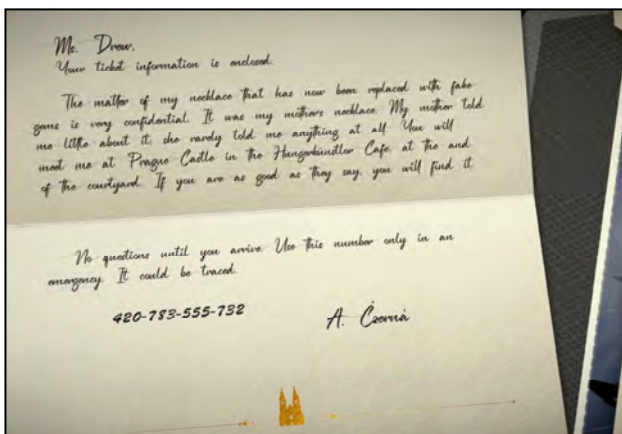 Ms. Drew,
Your ticket information is enclosed.
The matter of my necklace that has now been replaced with fake
gems is very confidential. It was my mothers necklace. My mother told
me little about it, she rarely told me anything at all. You will
meet me at Prague Castle in the Hungerbündler Cafe, at the end
of the courtyard. If you are as good as they say, you will find it.
No questions until you arrive. Use this number only in an
emergency. It could be traced.
420-783-555-732
A. Czerná